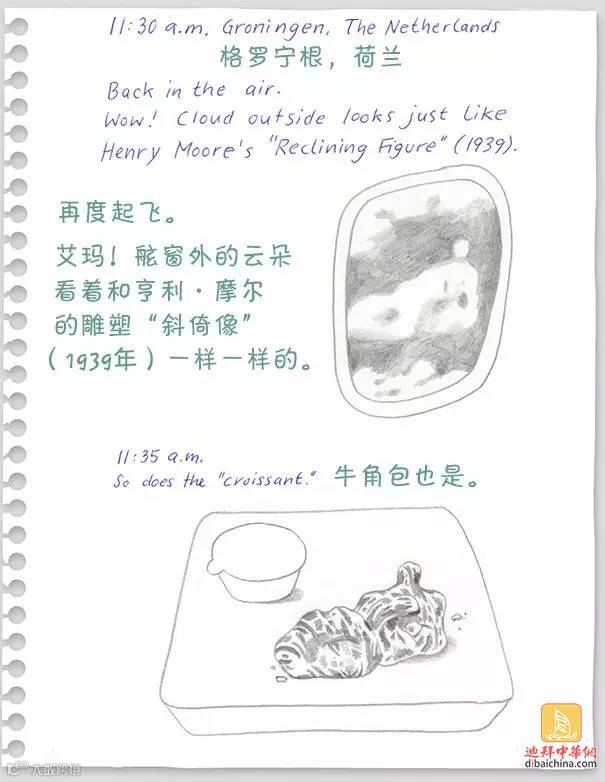 11:30 a.m. Groningen, The Netherlands
格罗宁根，荷兰
Back in the air.
Wow! Cloud outside looks just like
Henry Moore's "Reclining Figure" (1939).
再度起飞。
艾玛！舷窗外的云朵
看着和亨利·摩尔
的雕塑“斜倚像”
（1939年）一样一样的。
11:35 a.m.
So does the "croissant." 牛角包也是。
迪拜中華網
dibaichina.com
大数跨境